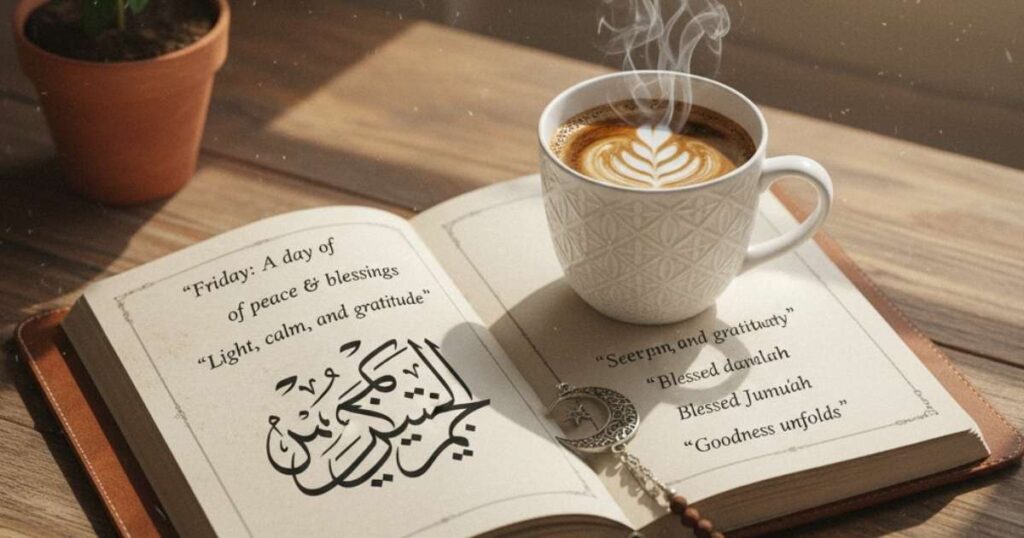 “Friday: A day of
of peace & blessings
“Light, calm, and gratitude”
“Seerpm, and gratitwaty”
“Blessed damlah
Blessed Jumuah
“Goodness unfolds”